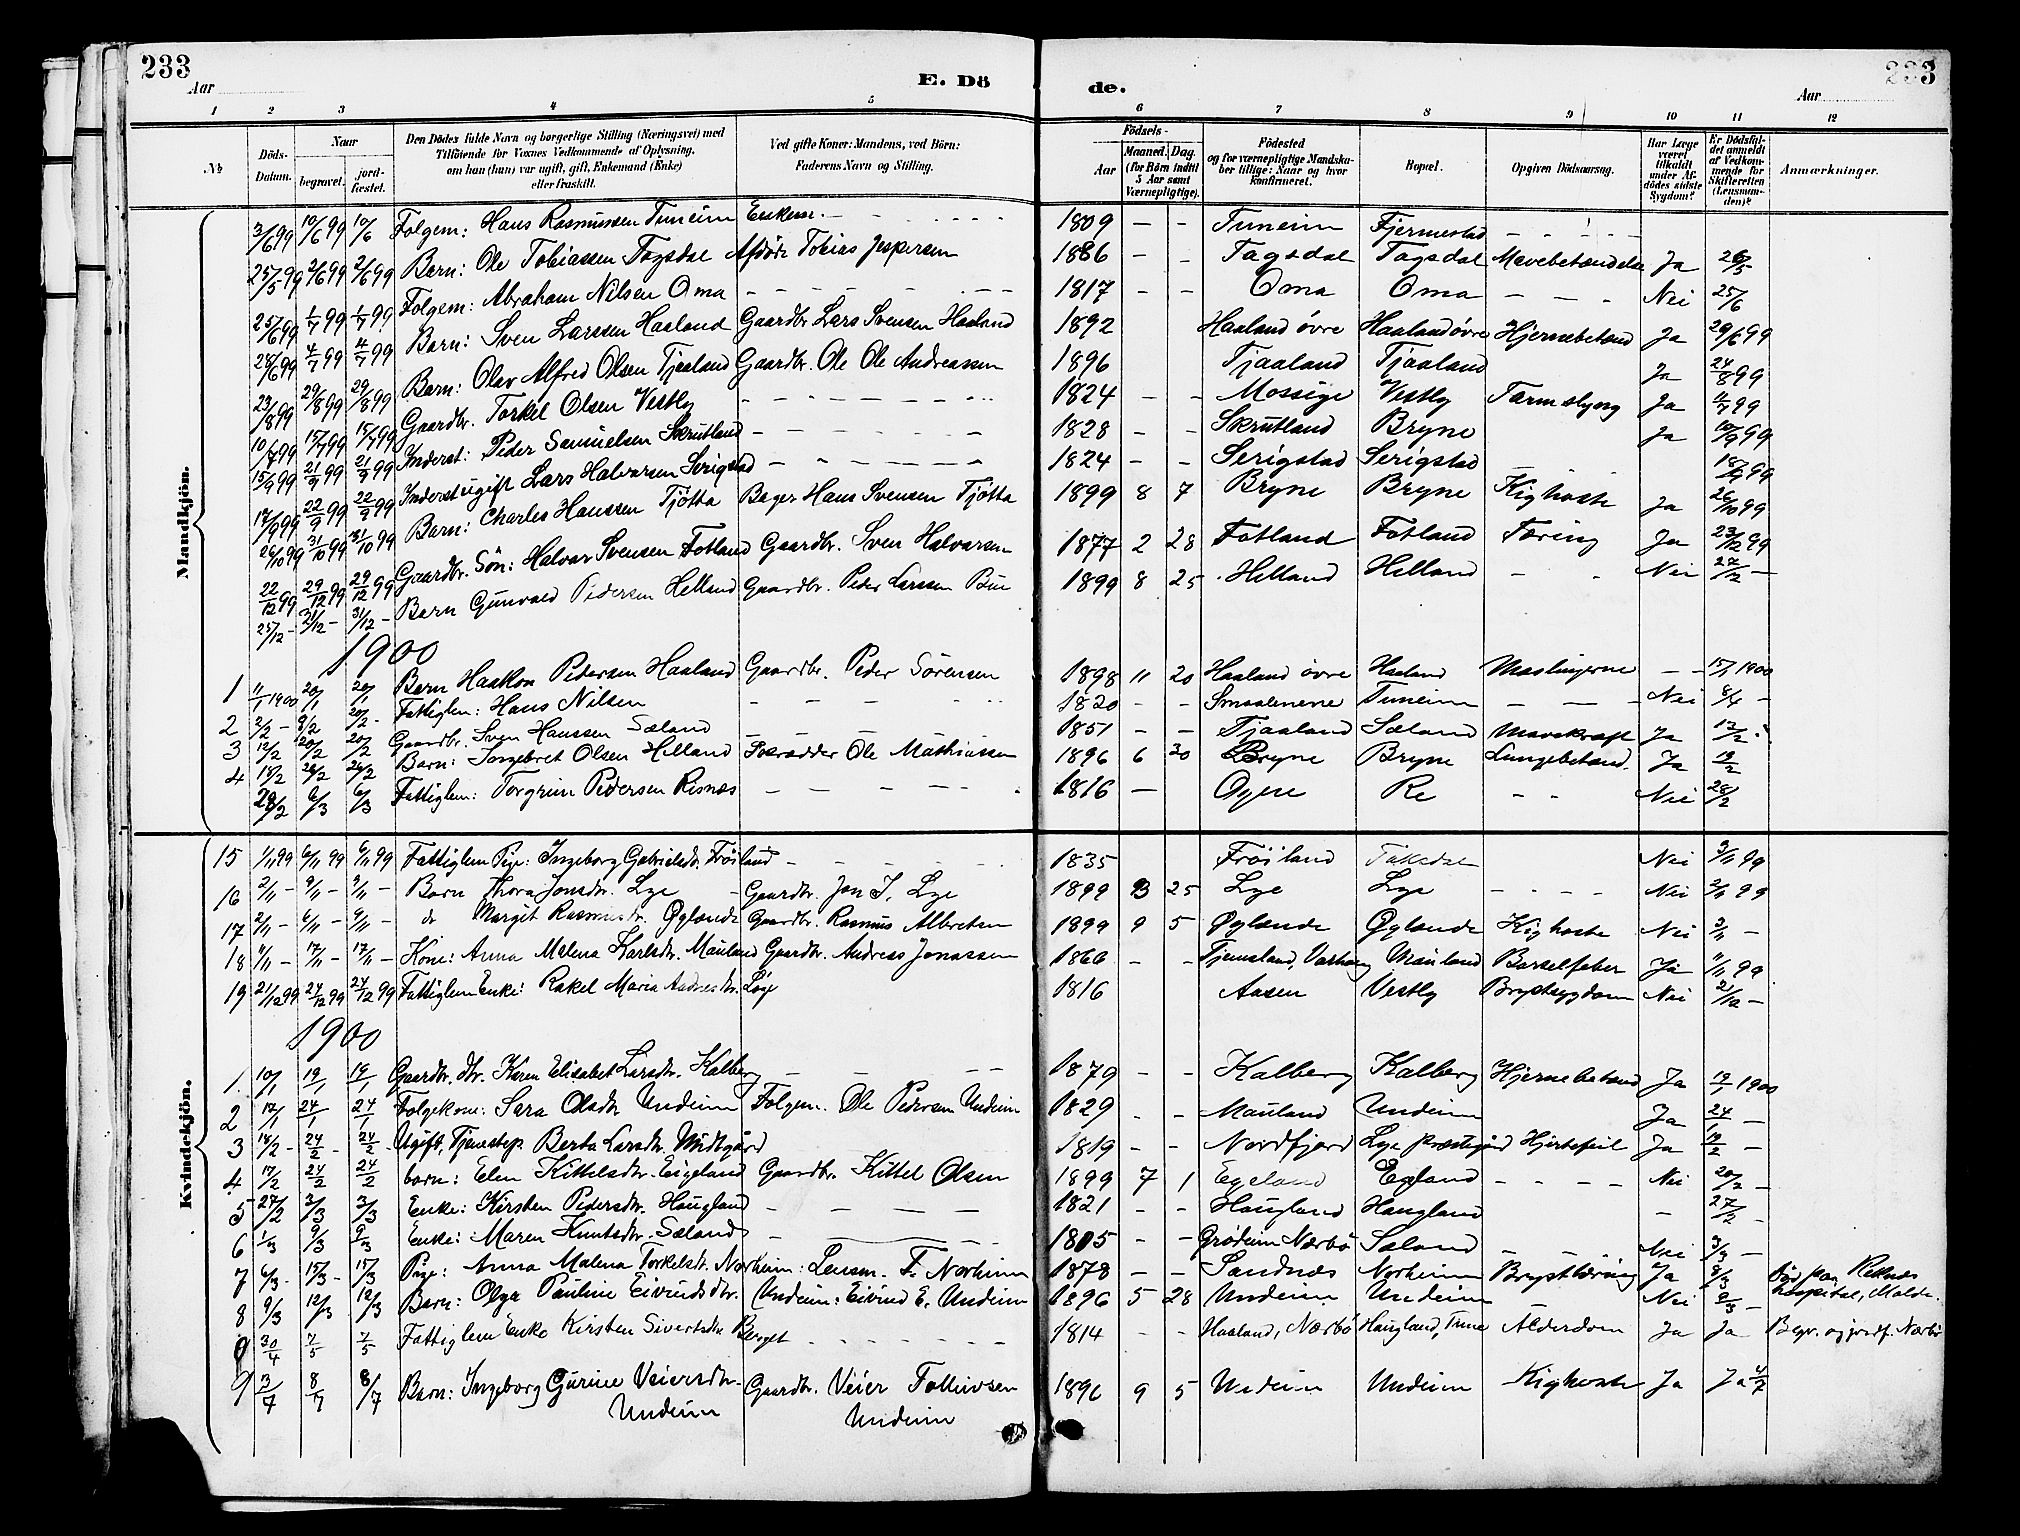 233
Aar
E. Dö
de.
Aar
233
1 2 3 4 5 6 7 8 9 10 11 12
№
Döds-Datum.
Naar
begravet.
jord-fæstet.
Den Dödes fulde Navn og borgerlige Stilling (Næringsvei) med
Tilföiende for Voxnes Vedkommende af Oplysning,
om han (hun) var ugift, gift, Enkemand (Enke)
eller fraskilt.
Ved gifte Koner: Mandens, ved Börn:
Faderens Navn og Stilling.
Födsels-
Aar
Maaned. Dag.
(for Börn indtil 5 Aar samt Værnepligtige).
Födested
og for værnepligtige Mandska-
ber tillige: Naar og hvor
konfirmeret.
Bopæl.
Opgiven Dödsaarsag.
Har Læge været tilkaldt under Af-dödes sidste Sygdom?
Er Dödsfal-det anmeldt af Vedkom-mende for Skifteretten (Lensman-den)?
Anmærkninger.
Mandkjön.
3/6 99 10/6 99 10/6 Folgem: Hans Rasmussen Tuneim Enkem. - 1809 - - Tuneim Fjermestad - -
25/5 99 2/6 99 2/6 99 Barn: Ole Tobiassen Tagsdal Afdöde Tobias Jespersen 1886 - - Tagsdal Tagsdal Mavebetændelse Ja 26/5
25/6 99 1/7 99 1/7 99 Folgem: Abraham Nilsen Oma - - 1817 - - Oma Oma - - Nei 25/6
28/6 99 4/7 99 4/7 99 Barn: Sven Larssen Haaland Gaardbr. Lars Svensen Haaland 1892 Haaland övre Haaland övre Hjernebetænd Ja 29/6 99
23/8 99 29/8 99 29/8 99 Barn: Olav Alfred Olsen Tjaaland Gaardbr. Ole Ole Andreassen 1896 Tjaaland Tjaaland Ja 24/8 99
10/7 99 15/7 99 15/7 99 Gaardbr. Torkel Olsen Vestly - - 1824 - - Mossige Vestly Ja 11/7 99
15/9 99 21/9 99 21/9 99 Inderst: Peder Samuelsen Skrutland - - 1828 - - Skrutland Bryne Ja 10/9 99
17/9 99 22/9 99 22/9 99 Inderst ugift Lars Halvorsen Serigstad - - 1824 - - Serigstad Serigstad - 18/9 99
26/10 99 31/10 99 31/10 99 Barn: Charles Hanssen Tjötta Bager Hans Svensen Tjötta 1899 8 7 Bryne Bryne Kighoste Ja 26/10 99
22/12 99 29/12 99 29/12 99 Gaardbr. Sön: Halvor Svensen Fotland Gaardbr. Sven Halvorsen 1877 2 28 Fotland Fotland Tæring Ja 23/12 99
25/12 - 31/12 - 31/12 - Barn Gunvald Pedersen Helland Gaardbr. Peder Larssen Bue 1899 8 25 Helland Helland - Nei 27/12 -
1900
1 11/1 1900 20/1 20/1 Barn Haakon Pedersen Haaland Gaardbr. Peder Sörensen 1898 11 20 Haaland övre Haaland Maslingerne - - 15/1 1900
2 2/2 - 9/2 20/2 - Fattiglem: Hans Nilsen - - 1820 - - Smaalenene Tuneim - - Nei 8/4 -
3 12/2 20/2 20/2 Gaardbr. Sven Hanssen Sæland - - 1851 - - Tjaaland Sæland Mavekræft Ja 12/2
4 18/2 26/2 26/2 Barn: Ingebret Olsen Helland Skrædder Ole Mathiassen 1896 6 30 Bryne Bryne Lungebetænd. Ja 19/2
28/2 6/3 6/3 Fattiglem: Torgrim Pedersen Risnæs - - 1816 - Re - - Nei 28/2
Kvindekjön.
15 1/11 99 6/11 99 6/11 99 Fattiglem Pige: Ingeborg Gabrielsdtr. Fröiland - - 1835 Fröiland Taksdal Nei 3/11 99
16 2/11 - 9/11 - 9/11 - Barn Thora Jonsdtr. Lye - Gaardbr. Jon J. Lye 1899 3 25 Lye Lye - - Nei 3/11 99
17 2/11 - 6/11 - 6/11 - do Margit Rasmusdtr. Öglænde Gaardbr. Rasmus Albretsen 1899 9 5 Öglænde Öglænde Kighoste Nei 3/11 -
18 11/11 - 17/11 - 17/11 - Kone: Anna Malena Karlsdtr. Mauland Gaardbr. Andreas Jonassen 1866 - - Tjemsland, Varhaug Mauland Barselfeber Ja 11/11 99
19 21/12 99 24/12 99 24/12 99 Fattiglem Enke: Rakel Maria Andreasdtr. Löge 1816 Aasen Vestly Brystsygdom Nei 21/12 -
1900
1 10/1 19/1 19/1 Gaardbr. dtr. Karen Elisabet Larsdtr. Kalberg - - 1879 - - Kalberg Kalberg Hjernebetænd Ja 12/1 1900
2 17/1 24/1 24/1 Folgekone: Sara Olsdtr Undeim Folgem. Ole Pedersen Undeim 1829 - - Mauland Undeim Ja 24/1 -
3 14/2 - 24/2 - 24/2 - Ugift, Tjenestep. Berta Larsdtr. Midtgård 1819 - - Nordfjord Lye præstegård Hjertefeil Ja 19/2 -
4 17/2 24/2 24/2 barn: Elen Kittelsdtr. Eigeland Gaardbr. Kittel Olsen 1899 7 1 Egeland Egeland - - Nei 20/2 -
5 27/2 3/3 3/3 Enke: Kirsten Pedersdtr. Haugland - - 1821 - - Haugland Haugland - 27/2 -
6 1/3 9/3 9/3 Enke: Maren Knutsdtr. Sæland - - 1805 - - Grödeim Nærbö Sæland - - Nei 3/3 -
7 6/3 - 15/3 - 15/3 Pige: Anna Malena Torkelsdtr. Norheim: Lensm. T. Norheim 1878 - - Sandnæs Norheim Brysttæring Ja 9/3 Död paa Reknæs hospital, Molde.
8 9/3 12/3 12/3 Barn: Olga Pauline Eivindsdtr. Undeim: Eivind E. Undeim 1896 5 28 Undeim Undeim Nei 9/3 -
9 30/4 7/5 7/5 Fattiglem Enke Kirsten Sivertsdtr Berget - - 1814 - - Haaland, Nærbö Haugland, Time Alderdom Ja Ja Begr. og jordf. Nærbö
9 3/7 8/7 8/7 Barn: Ingeborg Gurine Veiersdtr. Undeim Gaardbr. Veier Tollivsen Undeim 1896 9 5 Undeim Undeim Kighoste Ja Ja 4/7